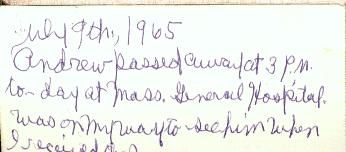 July 9th, 1965
Andrew passed away at 3 P.M.
to-day at Mass. General Hospital.
Was on my way to see him when
I received